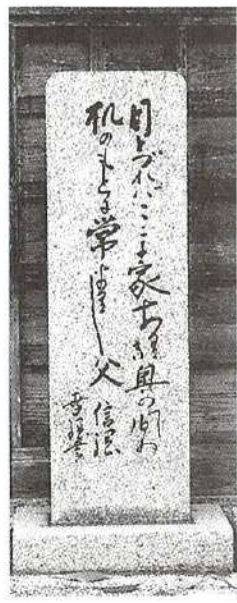 目とづればここに家ありき奥の間の
机のもとに常よりし父 信綱